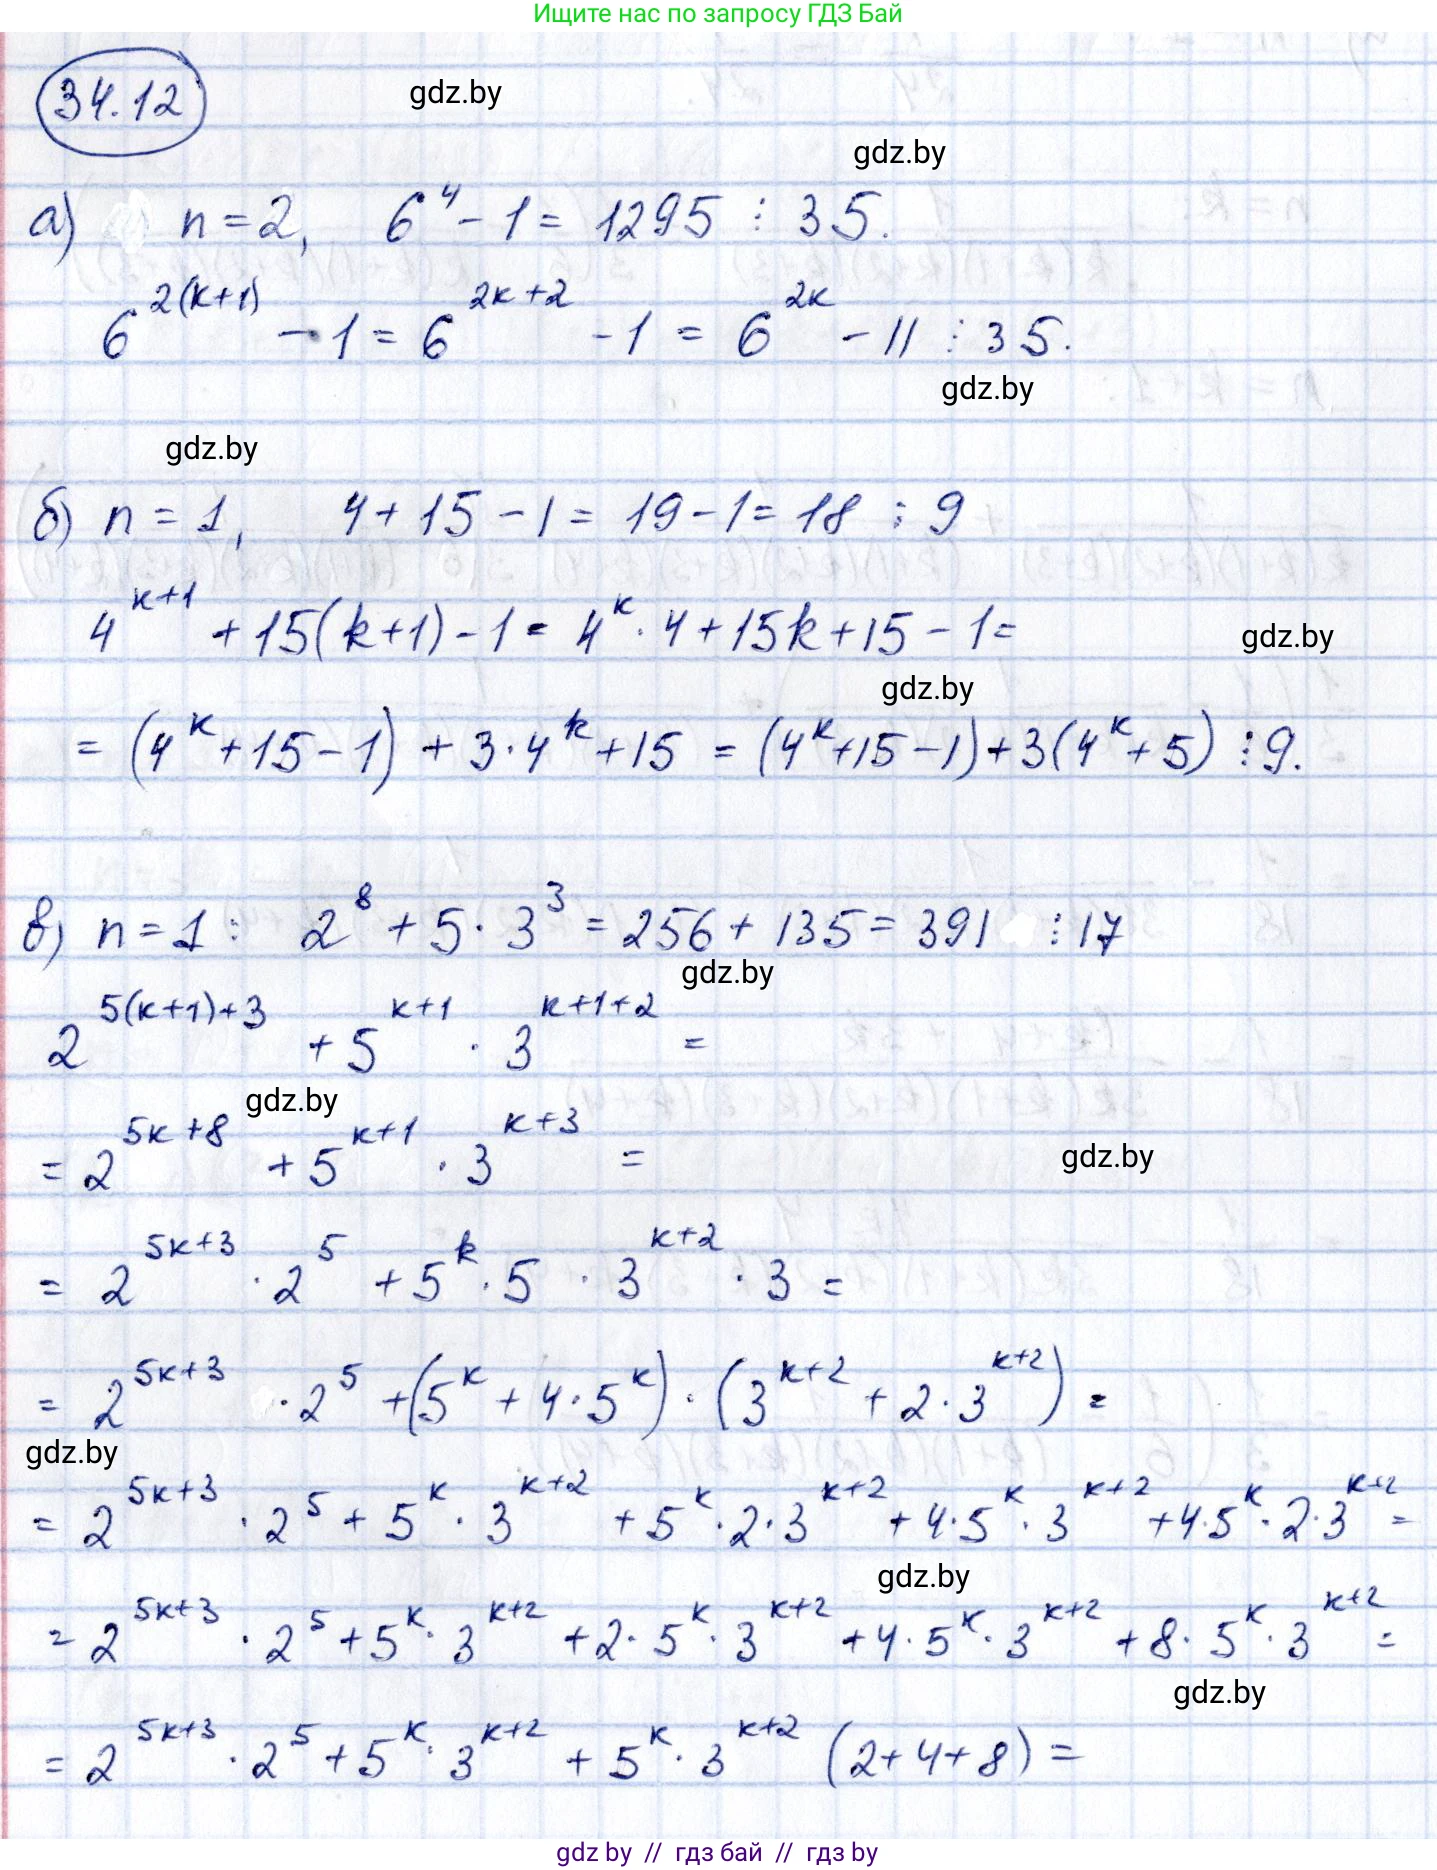 Ищите нас по запросу ГДЗ Бай
34.12
gdz.by
gdz.by
а) n = 2, 6^4 - 1 = 1295 ⋮ 35.
6^{2(k+1)} - 1 = 6^{2k+2} - 1 = 6^{2k} - 11 ⋮ 35.
gdz.by
gdz.by
б) n = 1, 4 + 15 - 1 = 19 - 1 = 18 ⋮ 9
4^{k+1} + 15(k+1) - 1 = 4^k · 4 + 15k + 15 - 1 =
gdz.by
gdz.by
= (4^k + 15 - 1) + 3 · 4^k + 15 = (4^k + 15 - 1) + 3(4^k + 5) ⋮ 9.
в) n = 1 : 2^8 + 5 · 3^3 = 256 + 135 = 391 ⋮ 17
gdz.by
2^{5(k+1)+3} + 5^{k+1} · 3^{k+1+2} =
gdz.by
= 2^{5k+8} + 5^{k+1} · 3^{k+3} =
gdz.by
= 2^{5k+3} · 2^5 + 5^k · 5 · 3^{k+2} · 3 =
= 2^{5k+3} · 2^5 + (5^k + 4 · 5^k) · (3^{k+2} + 2 · 3^{k+2}) =
gdz.by
= 2^{5k+3} · 2^5 + 5^k · 3^{k+2} + 5^k · 2 · 3^{k+2} + 4 · 5^k · 3^{k+2} + 4 · 5^k · 2 · 3^{k+2} =
gdz.by
= 2^{5k+3} · 2^5 + 5^k · 3^{k+2} + 2 · 5^k · 3^{k+2} + 4 · 5^k · 3^{k+2} + 8 · 5^k · 3^{k+2} =
gdz.by
= 2^{5k+3} · 2^5 + 5^k · 3^{k+2} + 5^k · 3^{k+2} (2 + 4 + 8) =
gdz.by // гдз бай // гдз by